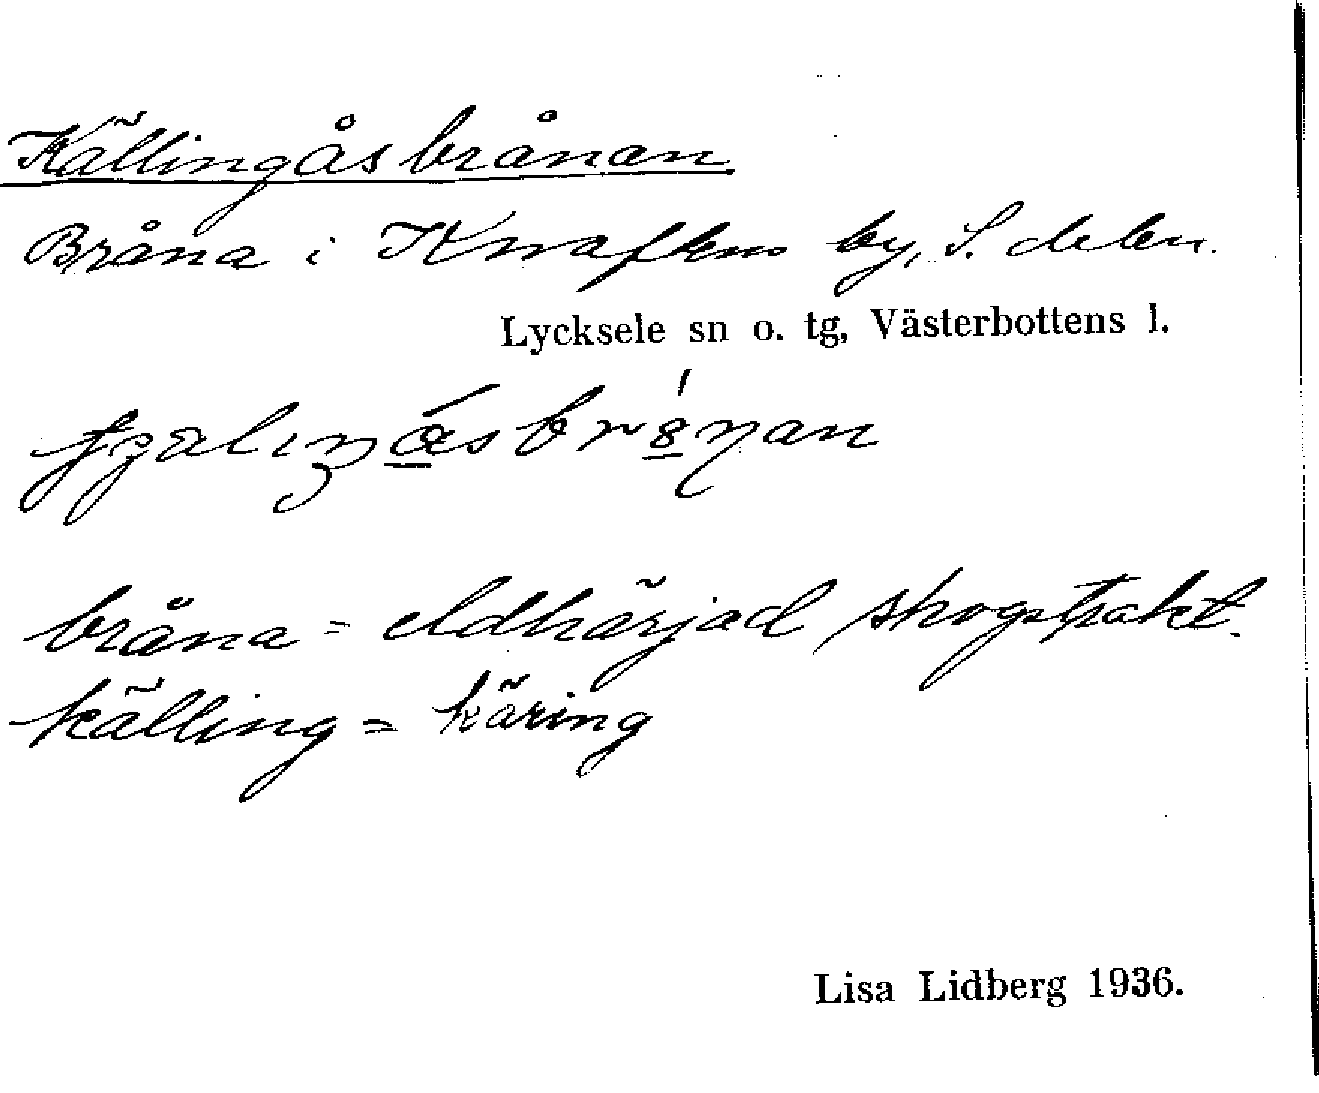 Källingåsbrånan
Bråna i Knaften by, S. delen.
Lycksele sn o. tg, Västerbottens l.
bråna = eldhärjad skogstrakt.
källing = käring
Lisa Lidberg 1936.